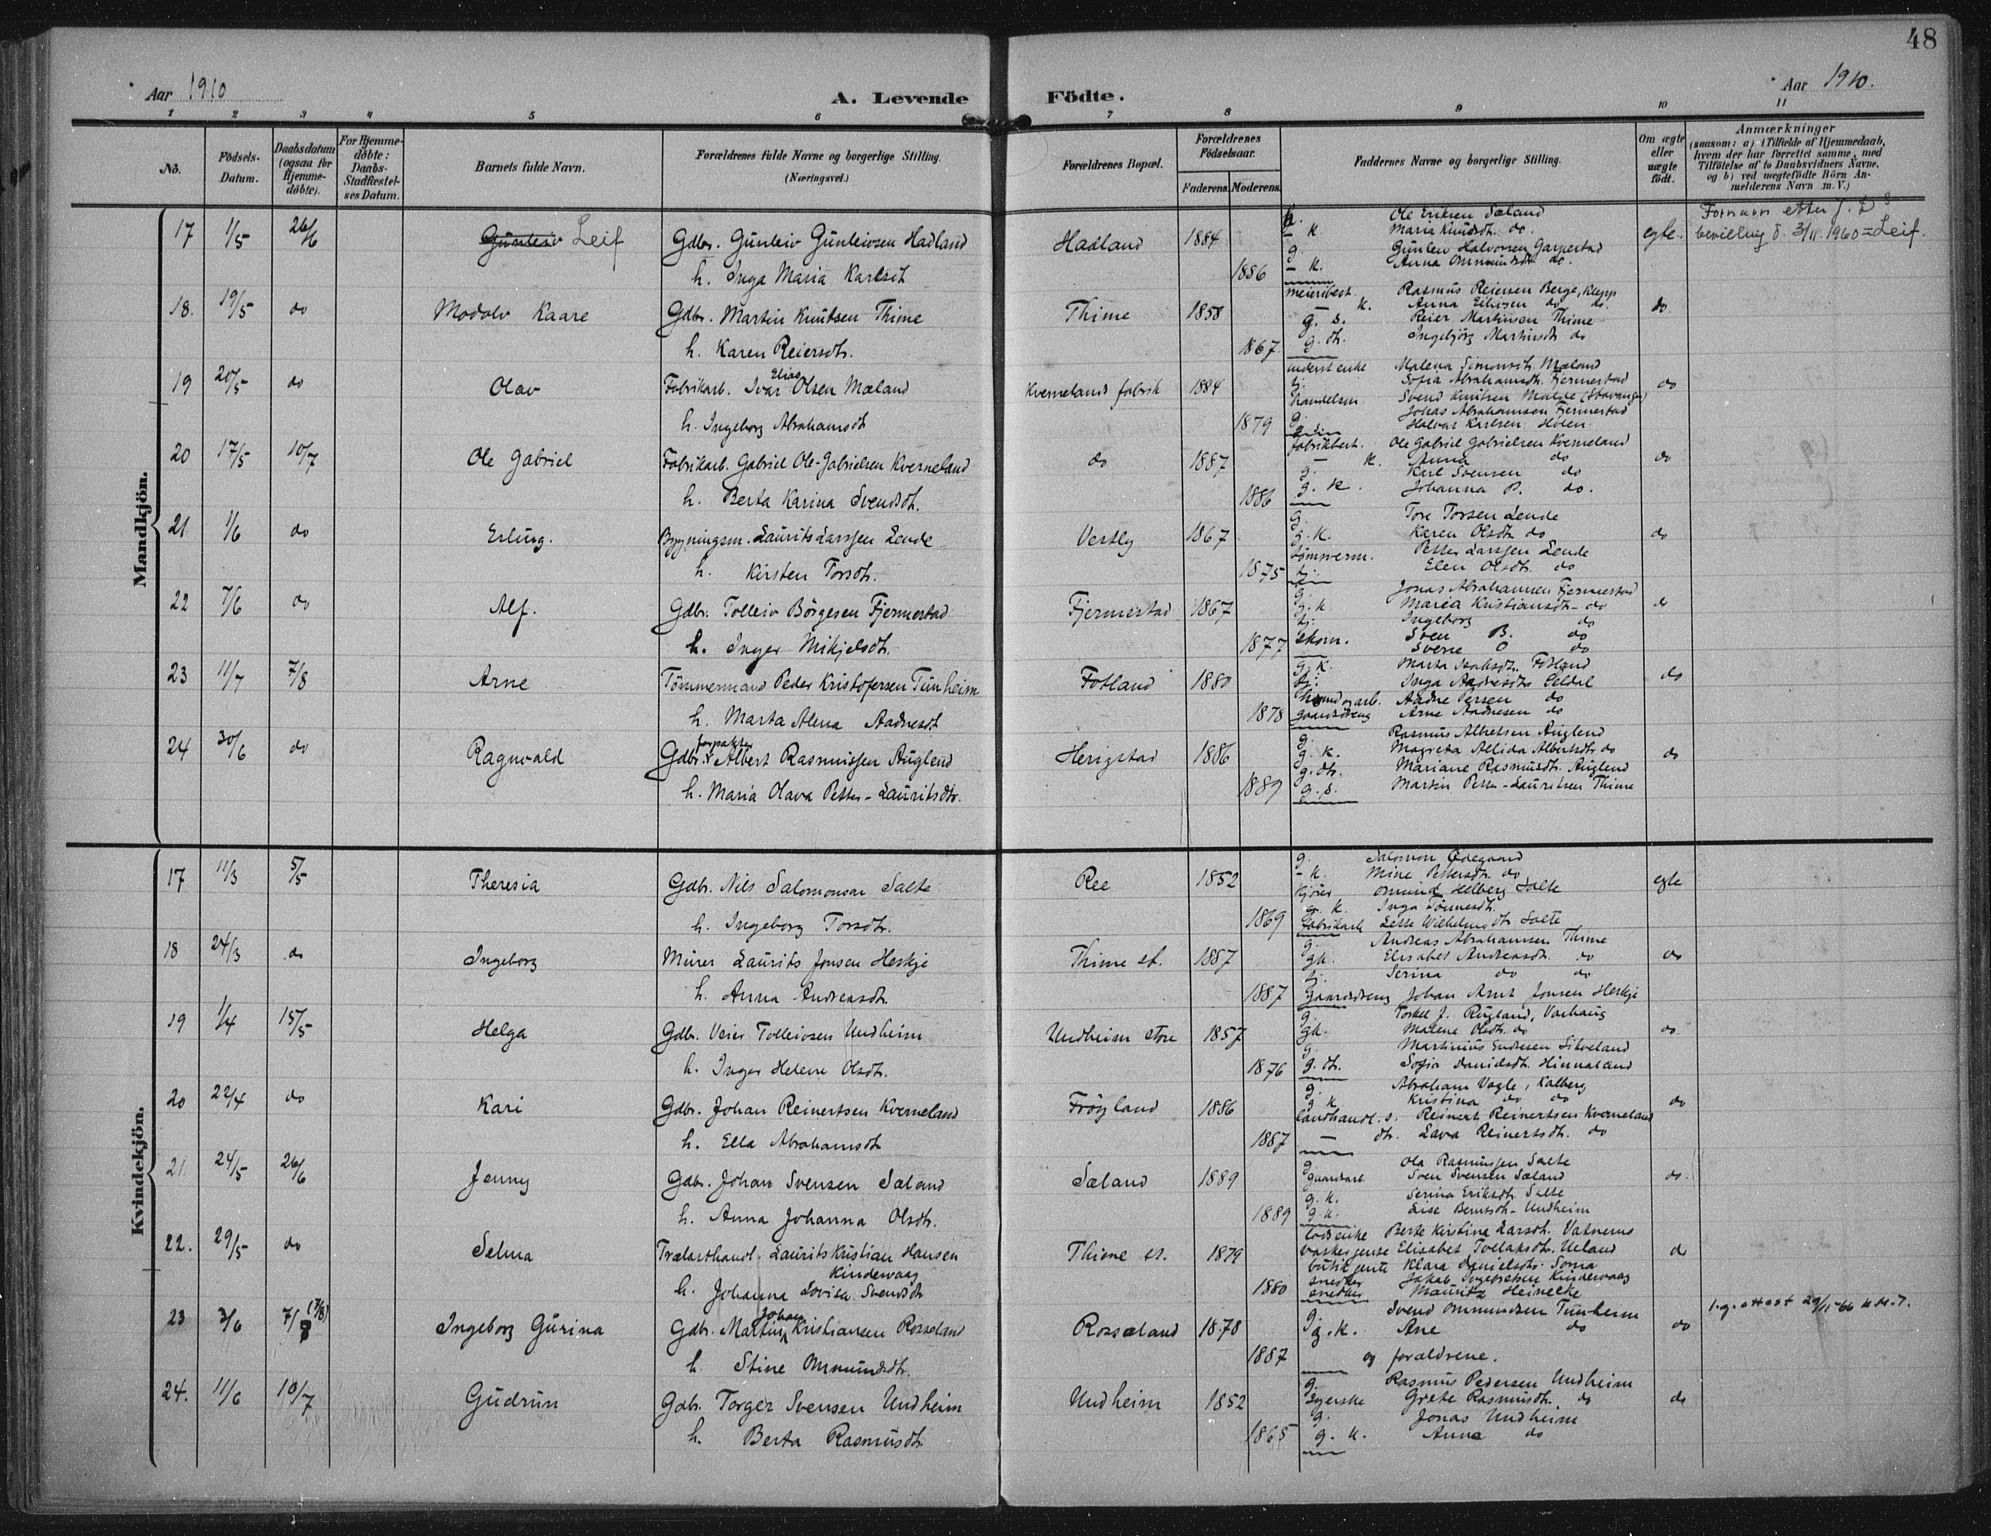 48
Aar 1910
A. Levende
Födte.
Aar 1910.
1 2 3 4 5 6 7 8 9 10 11
No.
Födsels-Datum.
Daabsdatum (ogsaa for Hjemmedöbte).
For Hjemmedöbte: Daabs-Stadfestelses Datum.
Barnets fulde Navn.
Forældrenes fulde Navne og borgerlige Stilling. (Næringsvei.)
Forældrenes Bopæl.
Forældrenes Födselsaar.
Faderens. Moderens.
Faddernes Navne og borgerlige Stilling.
Om ægte eller uægte födt.
Anmærkninger (saasom: a) i Tilfælde af Hjemmedaab, hvem der har forrettet samme, med Tilföielse af to Daabsvidners Navne, og b) ved uægtefödte Börn Anmelderens Navn m. V.)
Mandkjön.
17 1/5 26/6 Gunleiv Leif Gdbr. Gunleiv Gunleivsen Hadland Hadland 1884 Ole Eriksen Sæland egte. Fornavn etter J. D.s
k. Maria Knudsdt. do. bevilling d. 3/11. 1960 = Leif.
h. Inga Maria Karlsdt 1886 g. Gunlev Halvorsen Garpestad
k. Anna Ommundsdt do.
18. 19/5 do Modolv Kaare Gdbr. Martin Knutsen Thime Thime 1858 meieribest. Rasmus Reiersen Berge, Klepp do
k. Anna Eilivsen do do
h. Karen Reiersdt. 1867 g. s. Reier Martinsen Thime
g. dt. Ingebjörg Martinsdt do
19 20/5 do Olav Fabrikarb. Ivar Elias Olsen Mæland Kvernelands fabrik 1884 Malena Simonsdt. Mæland do
tj. Sofia Abrahamsdt. Fjermestad
handelsm Svend Knutsen Malde (Stavanger)
h. Ingeborg Abrahamsdt 1879 g. Jonas Abrahamsen Fjermestad
Halvar Karlsen Hölen
20 17/5 10/7 Ole Gabriel Fabrikarb. Gabriel Ole-Gabrielsen Kverneland do 1887 fabrikbest. Ole Gabriel Gabrielsen Kverneland do
– k. Anna do
h. Berta Karina Svendsdt. 1886 g. Karl Svensen do
g. k. Johanna P. do.
21 1/6 do Erling. Bygningsm. Laurits Larssen Lende Vestly 1867 g. Tore Torsen Lende do
g. k. Karen Olsdt do
h. Kirsten Torsdt. 1875 tömmerm. Petter Larssen Lende
tj. Elen Olsdt. do
22 7/6 do Alf. Gdbr. Tolleiv Börgesen Fjermestad Fjermestad 1867 g. Jonas Abrahamsen Fjermestad do
g. k. Maria Kristiansdt. do
tj. Ingeborg do
h. Inger Mikjelsdt. 1877 skom. Sven B. do
Sverre O do
23 11/7 7/8 Arne Tömmermand Peder Kristofersen Tunheim Fotland 1880 g. k. Marta Fotland do
tj. Inga Aadnesdt
h. Marta Alena Aadnesdt 1878 Aadne Persen do
gaardsdreng Arne Aadnesen do
24 30/6 do Ragnvald Gdbr. forpakter Albert Rasmussen Auglend Herigstad 1886 g. Rasmus Albretsen Auglend do
g. k. Magreta Allida Albertsdt. do
h. Maria Olava Petter-Lauritsdtr. 1889 g. dt. Mariane Rasmusdt. Auglend
g. s. Martin Petter-Lauritsen Thime
Kvindekjön.
17 11/3 5/5 Theresia Gdbr. Nils Salomonsen Salte Ree 1852 g. Salomon Ödegaard egte
– k. Mine Pettersdt. do
h. Ingeborg Torsdt. 1869 Osmund Helberg Salte
g. k. Inga Tönnesdt.
fabrikarb Salte
18 24/3 do Ingeborg Murer Laurits Jonsen Herikje Thime st. 1887 g. Andreas Abrahamsen Thime do
gk. Elisabet Andreasdt. do
h. Anna Andreasdt. 1887 tj. Serina do do
Gaardsdreng Johan Arnt Jonsen Heskje
19 1/4 15/5 Helga Gdbr. Veier Tolleivsen Undheim Undheim store 1857 g. Torkel J. Rugland, Varhaug do.
gk. Malene Olsdt. do
h. Inger Helene Olsdt. 1876 g. Martinius Endresen Silveland
g. dt. Sofia Danielsdt. Hinnaland
20 22/4 do Kari Gdbr. Johan Reinertsen Kverneland Fröyland 1886 g. Abraham Vagle, Kalberg do
g k Kristina do do
h. Ella Abrahamsdt 1887 landhandl. s. Reinert Reinertsen Kverneland
– dt. Lava Reinertsdt. do
21. 24/5 26/6 Jenny Gdbr. Johan Svensen Sæland Sæland 1889 g. Ola Rasmussen Salte do.
gaardarb Sven Svensen Sæland
h. Anna Johanna Olsdt. 1889 g. k. Serina Eriksdt. Salte
g. k. Lise Berntsdt. Undheim
22. 29/5 do Selma Trælasthandl. Laurits Kristian Hansen Kindervaag Thime st. 1879 Berte Kristina Larsdt. Vatnemo do
Elisabet Tollaksdt. Ueland
h. Johanna Lovisa Svendsdt 1880 Klara Danielsdt. Soma
snedker Jakob Ingebretsen Kindervaag
snedker Maurits Heinecke
23 3/6 7/8 (7/8) Ingeborg Gurina Gdbr. Martin Johan Kristiansen Rosseland Rossæland 1878 g. Svend Ommundsen Tunheim do
g. k. Ane do
h. Stine Ommundsdt. 1887 og forældrene.
24. 11/6 10/7 Gudrun Gdbr. Torger Svensen Undheim Undheim 1852 g. Rasmus Pedersen Undheim do
Syerske Grete Rasmusdt. do
h. Berta Rasmusdt. 1865 g. Jonas Undheim
g. k. Anna do